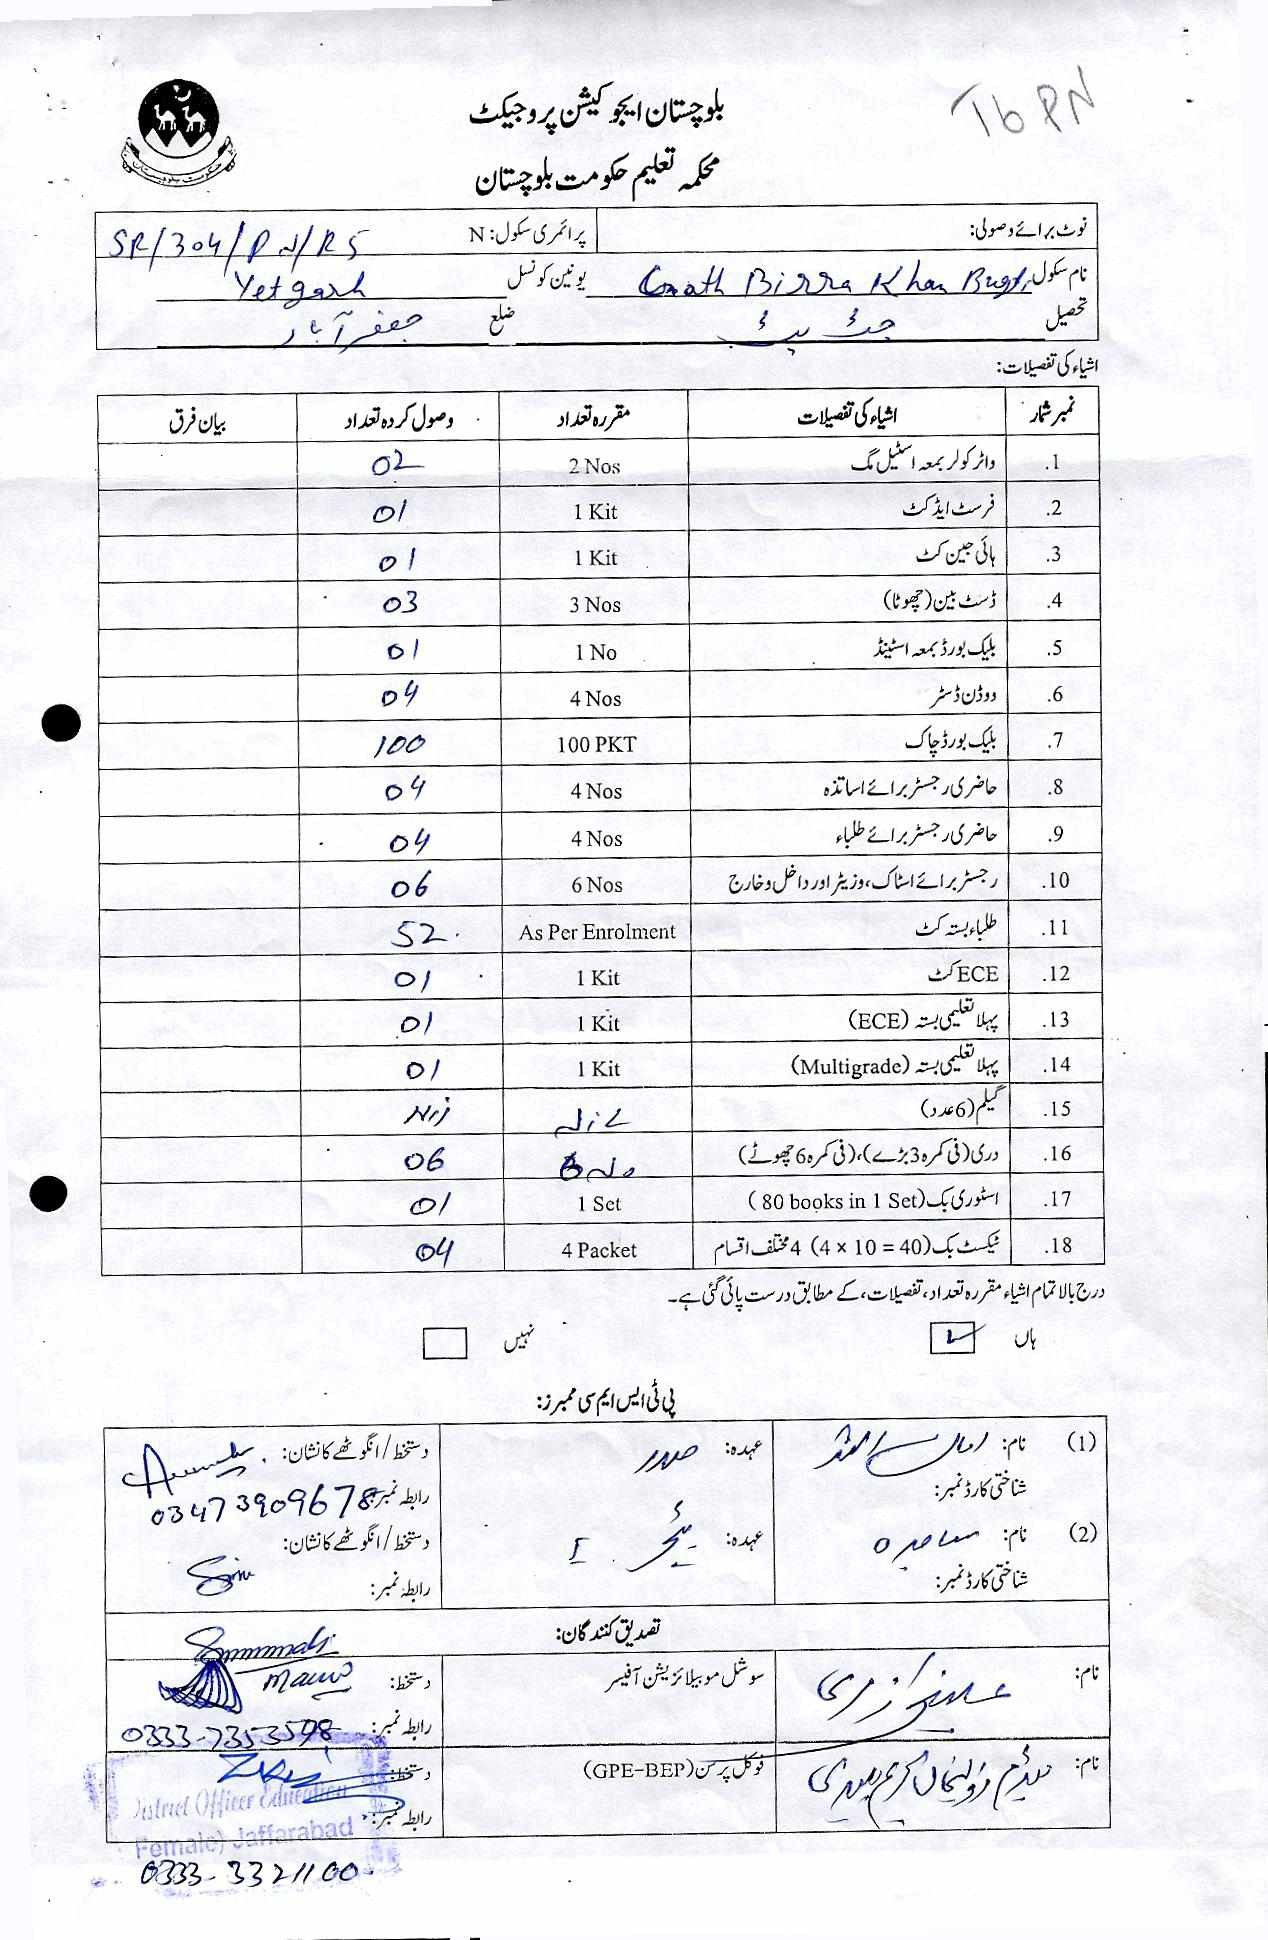 T6 PN
بلوچستان ایجوکیشن پروجیکٹ
محکمہ تعلیم حکومت بلوچستان
حکومت بلوچستان
نوٹ برائے وصولی: پرائمری سکول: N SR/304/PN/RS
نام سکول Goath Birra Khan Bugti یونین کونسل Yet garh
تحصیل جھٹ پٹ ضلع جعفرآباد
اشیاء کی تفصیلات:
نمبر شمار اشیاء کی تفصیلات مقررہ تعداد وصول کردہ تعداد بیان فرق
1. واٹر کولر بمعہ اسٹیل مگ 2 Nos 02
2. فرسٹ ایڈ کٹ 1 Kit 01
3. ہائی جین کٹ 1 Kit 01
4. ڈسٹ بین (چھوٹا) 3 Nos 03
5. بلیک بورڈ بمعہ اسٹینڈ 1 No 01
6. ووڈن ڈسٹر 4 Nos 04
7. بلیک بورڈ چاک 100 PKT 100
8. حاضری رجسٹر برائے اساتذہ 4 Nos 04
9. حاضری رجسٹر برائے طلباء 4 Nos 04
10. رجسٹر برائے اسٹاک، وزیٹر اور داخل و خارج 6 Nos 06
11. طلباء بستہ کٹ As Per Enrolment 52
12. ECE کٹ 1 Kit 01
13. پہلا تعلیمی بستہ (ECE) 1 Kit 01
14. پہلا تعلیمی بستہ (Multigrade) 1 Kit 01
15. گیلم (6 عدد)
16. دری (فی کمرہ 3 بڑے)، (فی کمرہ 6 چھوٹے) 6 No 06
17. اسٹوری بک (80 books in 1 Set) 1 Set 01
18. ٹیکسٹ بک (4 × 10 = 40) 4 مختلف اقسام 4 Packet 04
درج بالا تمام اشیاء مقررہ تعداد، تفصیلات، کے مطابق درست پائی گئی ہے۔
ہاں ✓ نہیں
پی ٹی ایس ایم سی ممبرز:
(1) نام: امان اللہ عہدہ: صدر دستخط/انگوٹھے کا نشان:
شناختی کارڈ نمبر: رابطہ نمبر: 03473909678
(2) نام: ساجدہ عہدہ: دستخط/انگوٹھے کا نشان:
شناختی کارڈ نمبر: رابطہ نمبر:
تصدیق کنندگان:
نام: سوشل موبیلائزیشن آفیسر دستخط:
رابطہ نمبر: 0333-7353598
نام: میڈم فوکل پرسن (GPE-BEP) دستخط:
رابطہ نمبر:
District Officer Education
(Female) Jaffarabad
0333-3321100